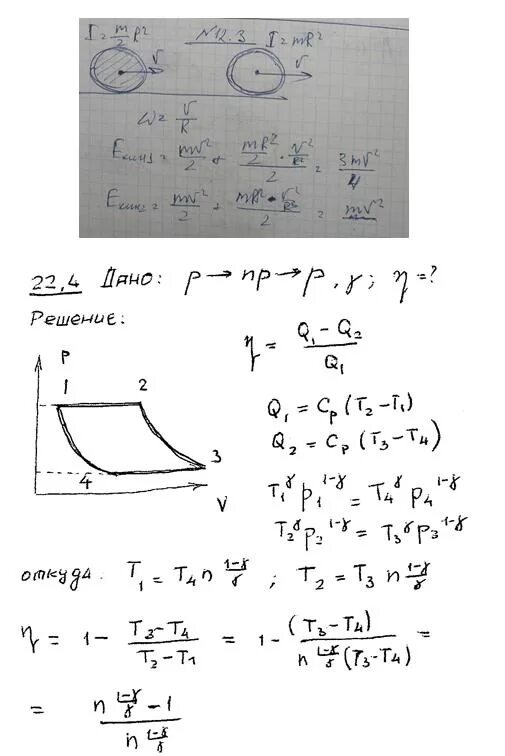 I = m/2 R² № 12.3 I = mR²
v v
ω = v/R
Eкин1 = mv²/2 + (mR²/2 · v²/R²)/2 = 3mv²/4
Eкин2 = mv²/2 + (mR² · v²/R²)/2 = mv²
22,4 Дано: p → np → p, γ; η = ?
Решение:
η = (Q₁ − Q₂)/Q₁
P
1 2
Q₁ = Cₚ (T₂ − T₁)
Q₂ = Cₚ (T₃ − T₄)
3
4
V
T₁^γ p₁^(1−γ) = T₄^γ p₄^(1−γ)
T₂^γ p₂^(1−γ) = T₃^γ p₃^(1−γ)
откуда: T₁ = T₄ n^((1−γ)/γ) ; T₂ = T₃ n^((1−γ)/γ)
η = 1 − (T₃ − T₄)/(T₂ − T₁) = 1 − (T₃ − T₄)/(n^((1−γ)/γ) (T₃ − T₄)) =
= (n^((1−γ)/γ) − 1)/n^((1−γ)/γ)